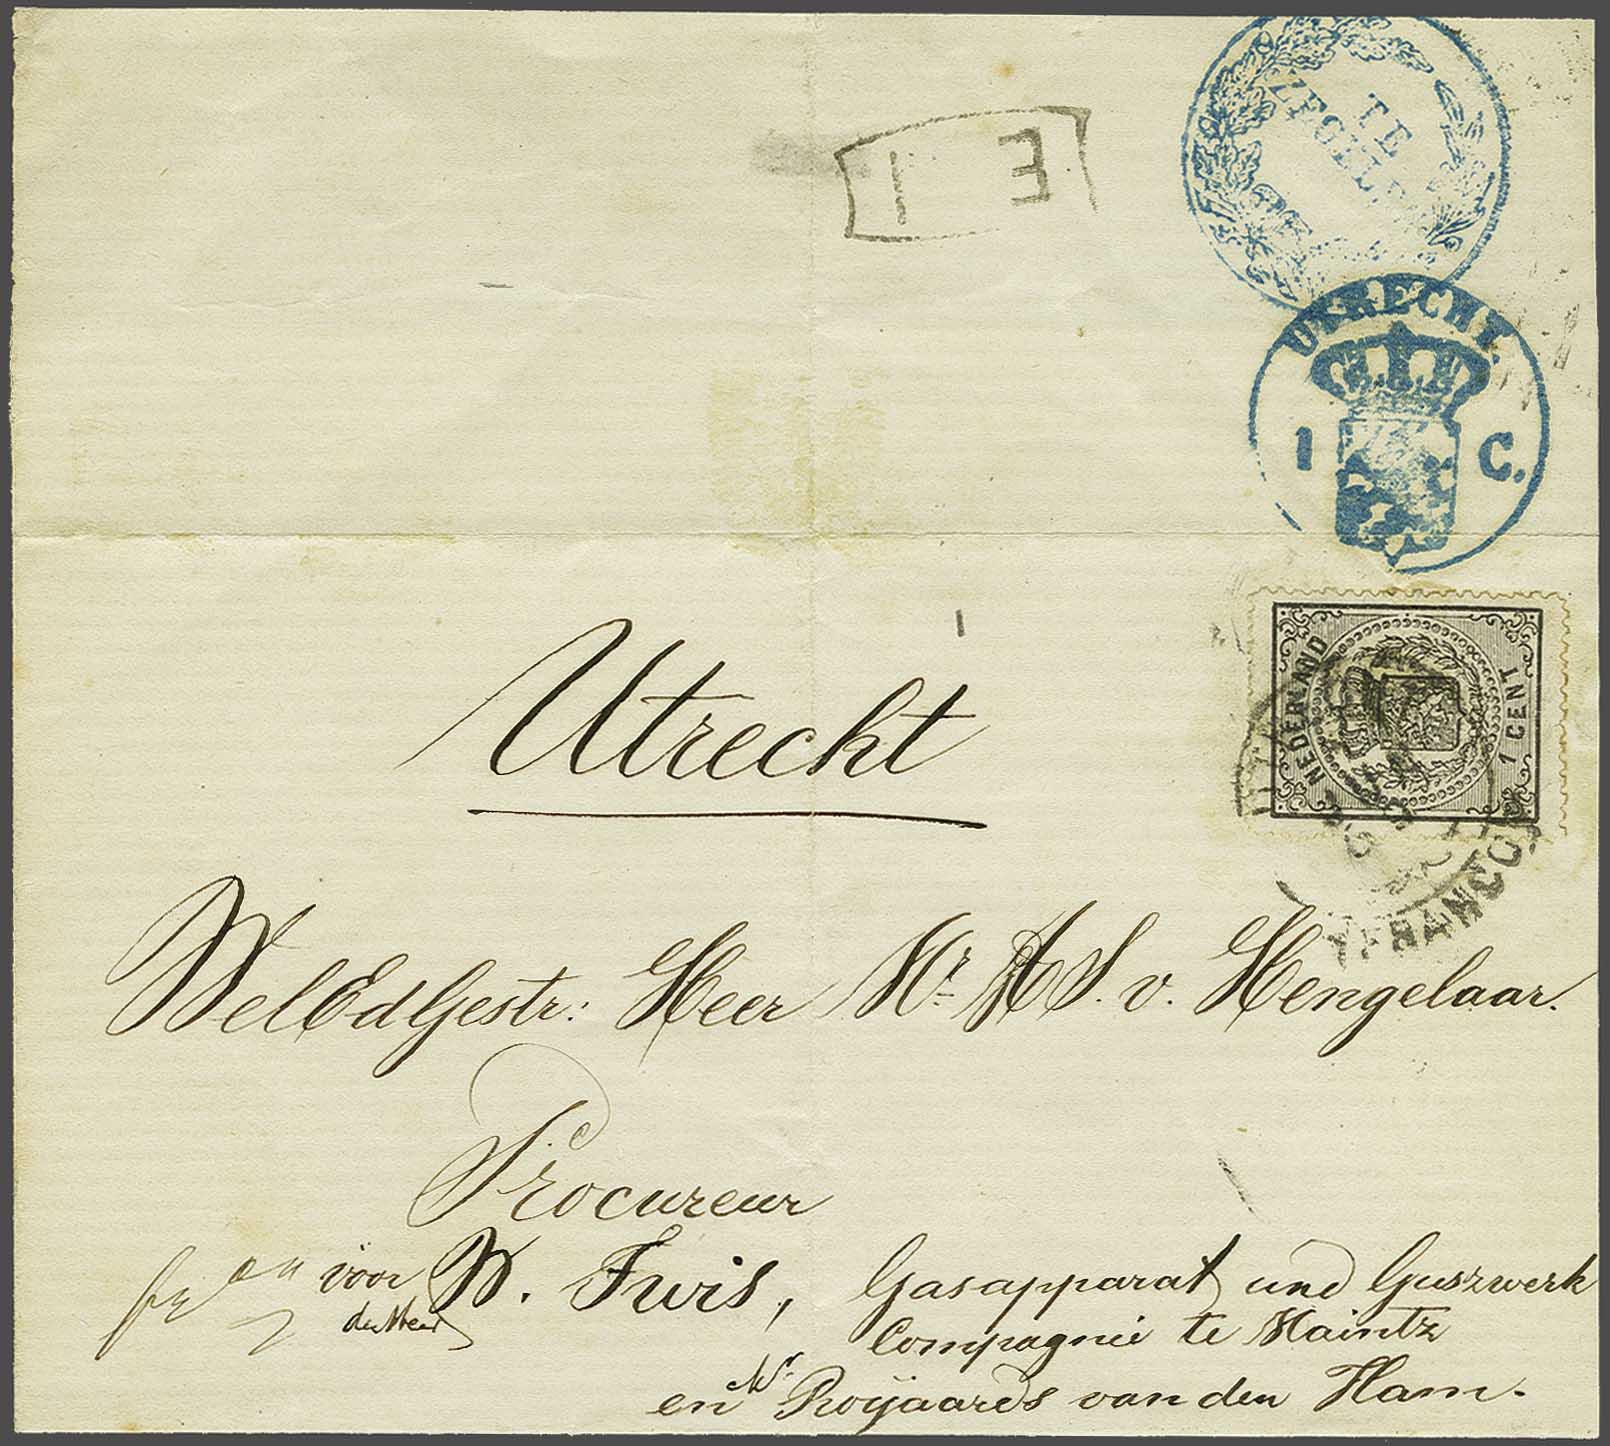 TE
ZEGELEN
E I
UTRECHT.
1 C.
NEDERLAND
1 CENT
FRANCO
Utrecht
WelEdGestr: Heer Mr A S. v. Hengelaar.
Procureur
voor W. Fwis, Gasapparat und Guszwerk
de Heer
Compagnie te Maintz
en Mr. Royaards van den Ham.